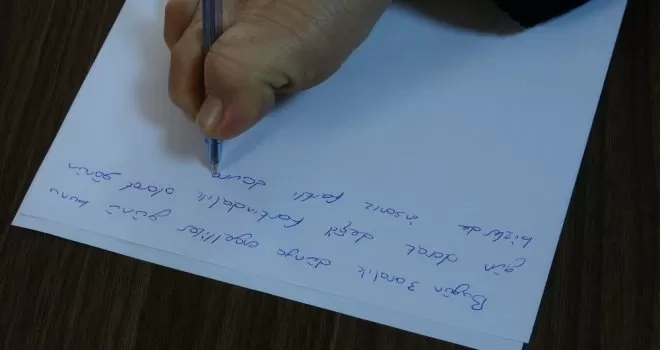 Bugün 3 aralık dünya engelliler günü bunu
gün olarak değil farkındalık olarak görün
bizlerde insanız farklı